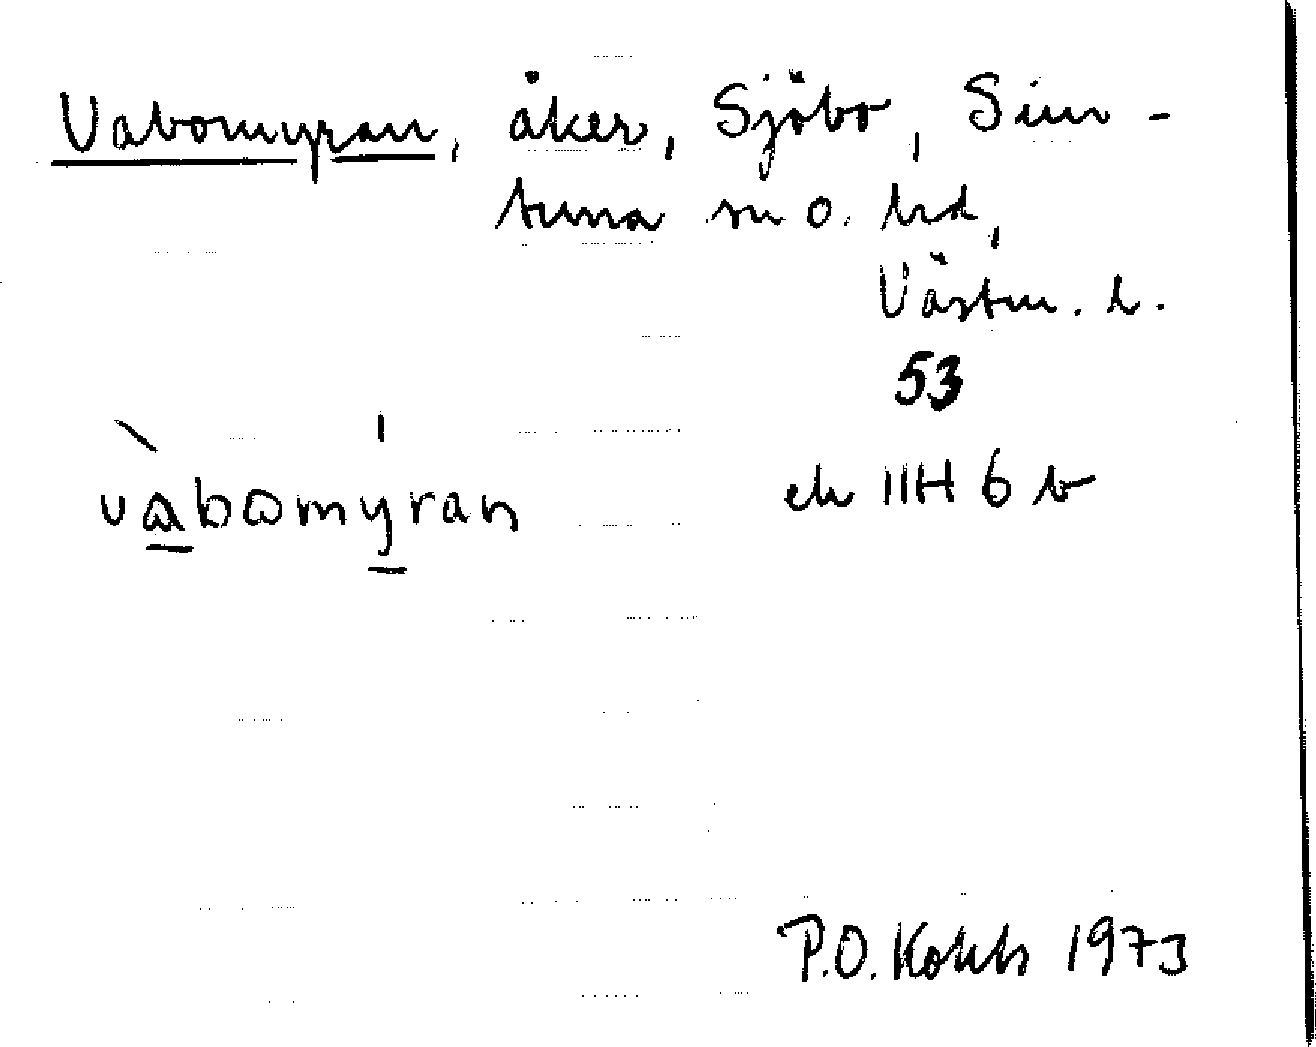 Vabomyran, åker, Sjöbo, Sim-
tuna sn o. hd,
Västm. l.
53
vàbomýran
ek 11H 6 b
P.O. Kohls 1973